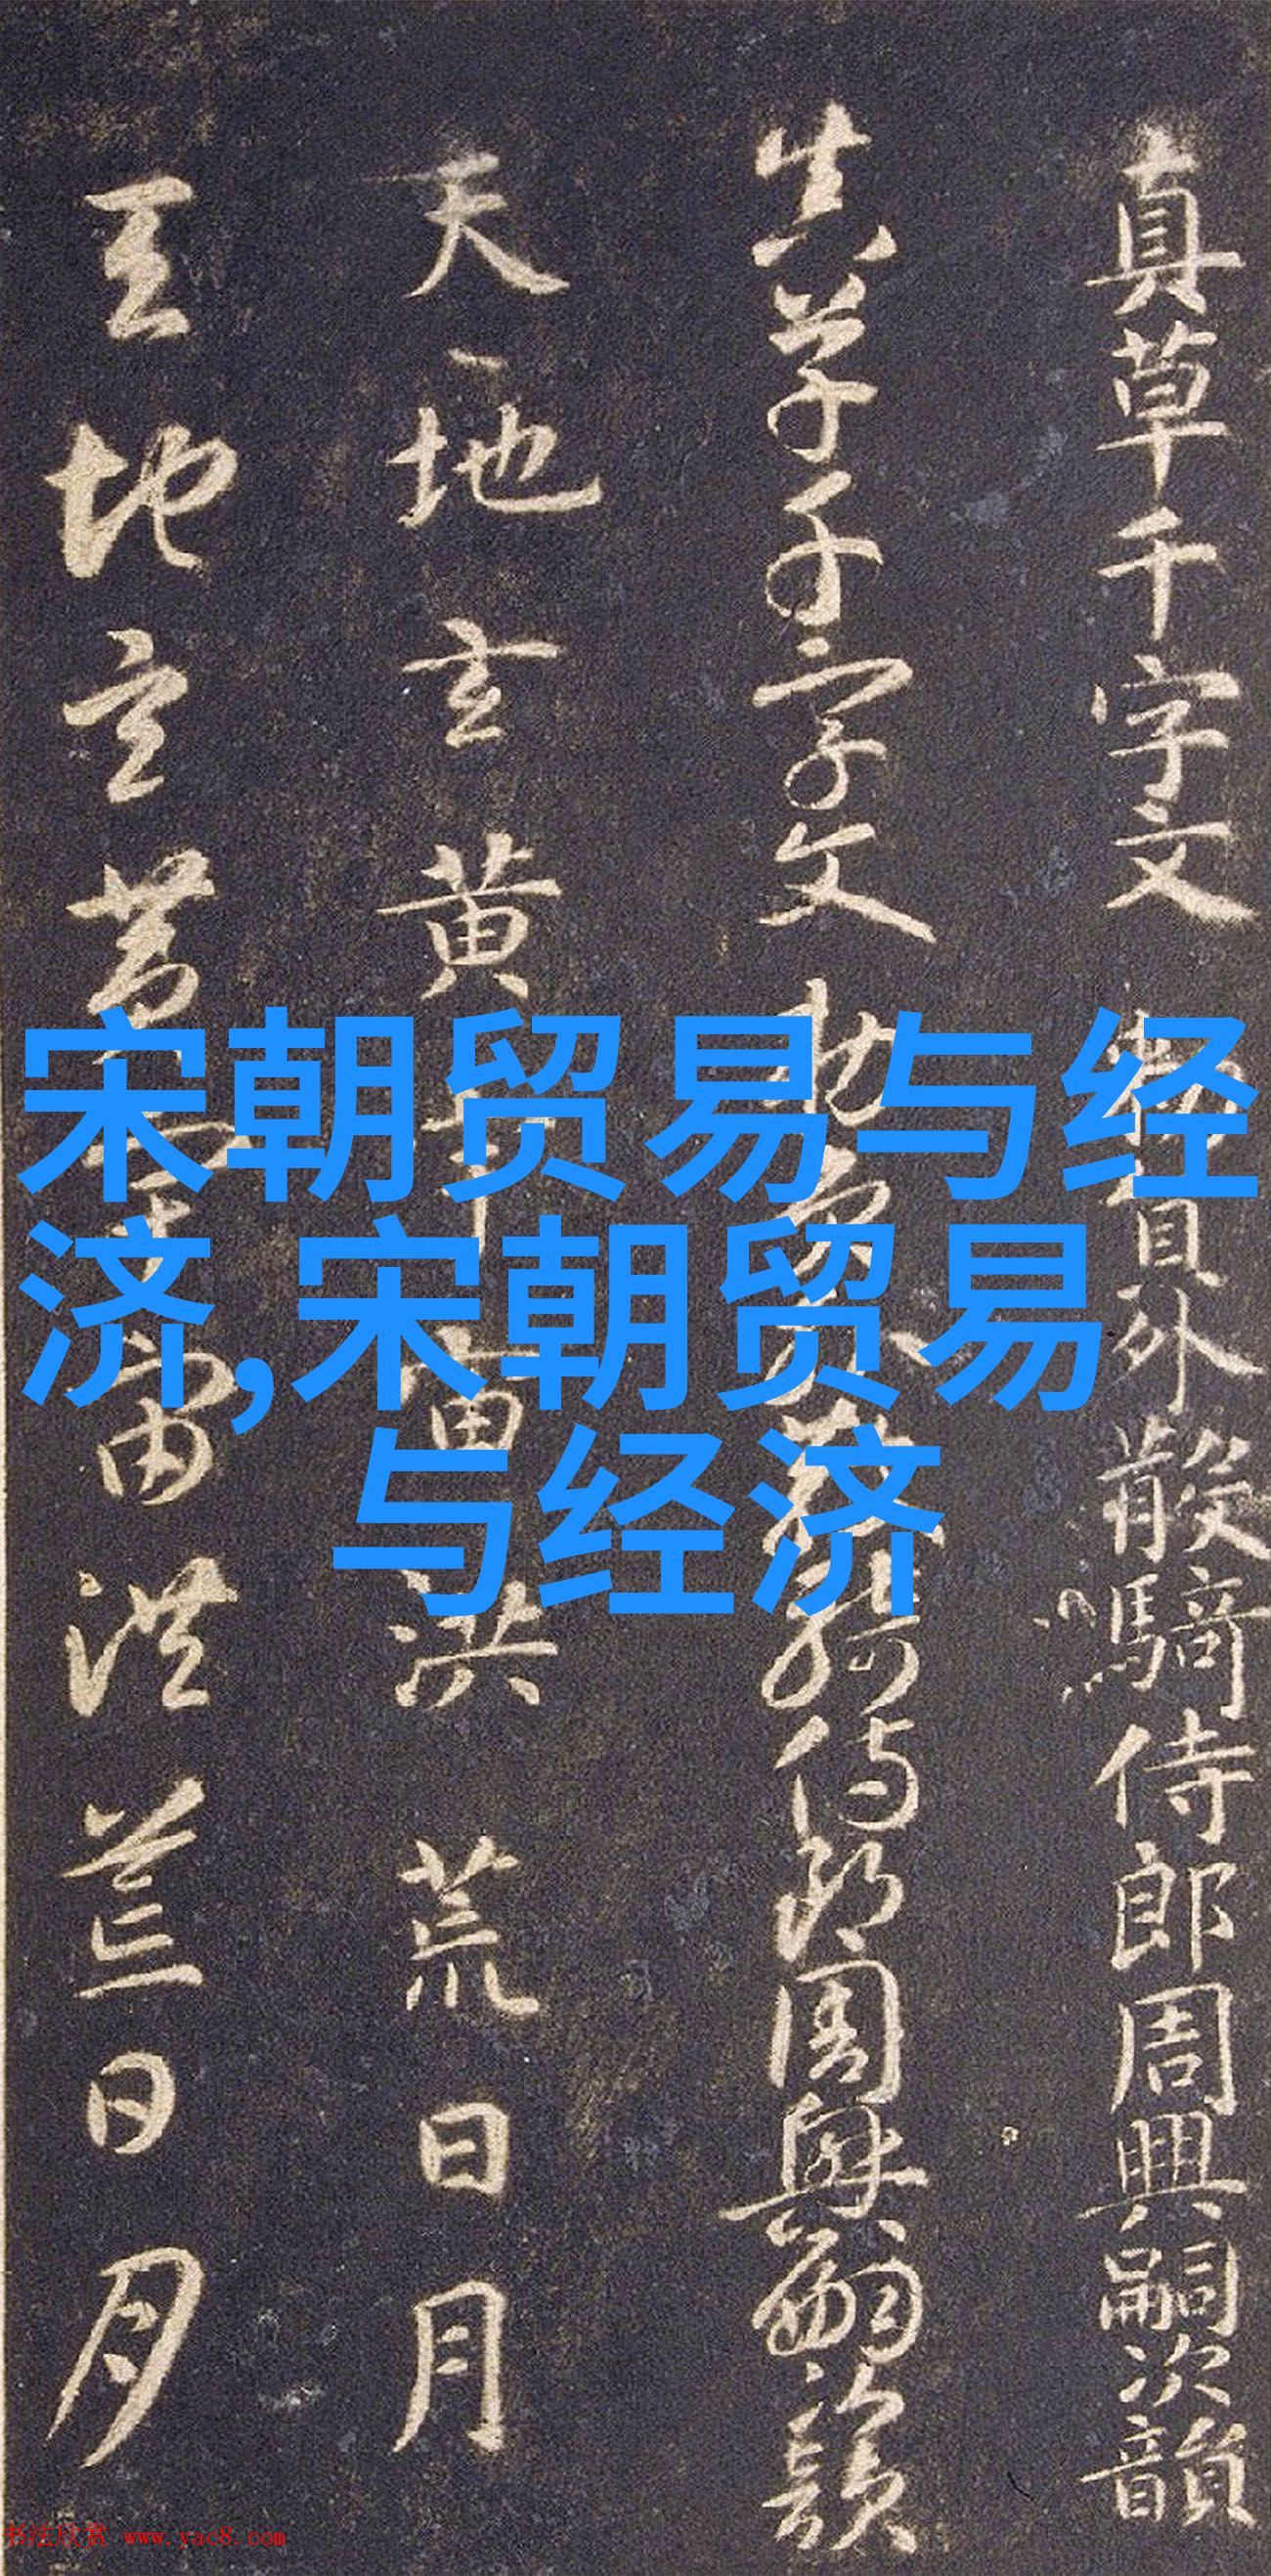 真草千字文 勑員外散騎侍郎周興嗣次韻
真草千字文 勑員外散騎侍郎周興嗣次韻
天地玄黄宇宙洪荒日月
天地玄黄宇宙洪荒日月
宋朝贸易与经
济,宋朝贸易
与经济
书法欣赏 www.yac8.com